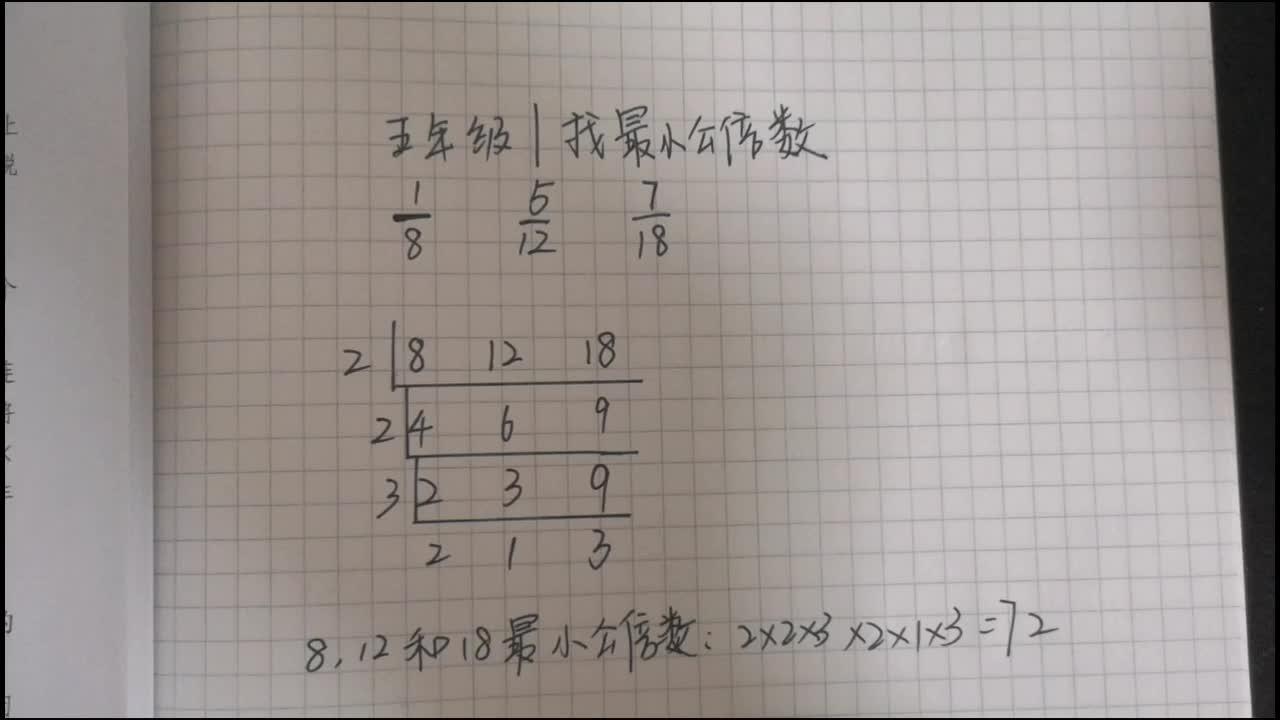 五年级|找最小公倍数
1/8 5/12 7/18
2 8 12 18
2 4 6 9
3 2 3 9
2 1 3
8,12和18最小公倍数:2×2×3×2×1×3=72